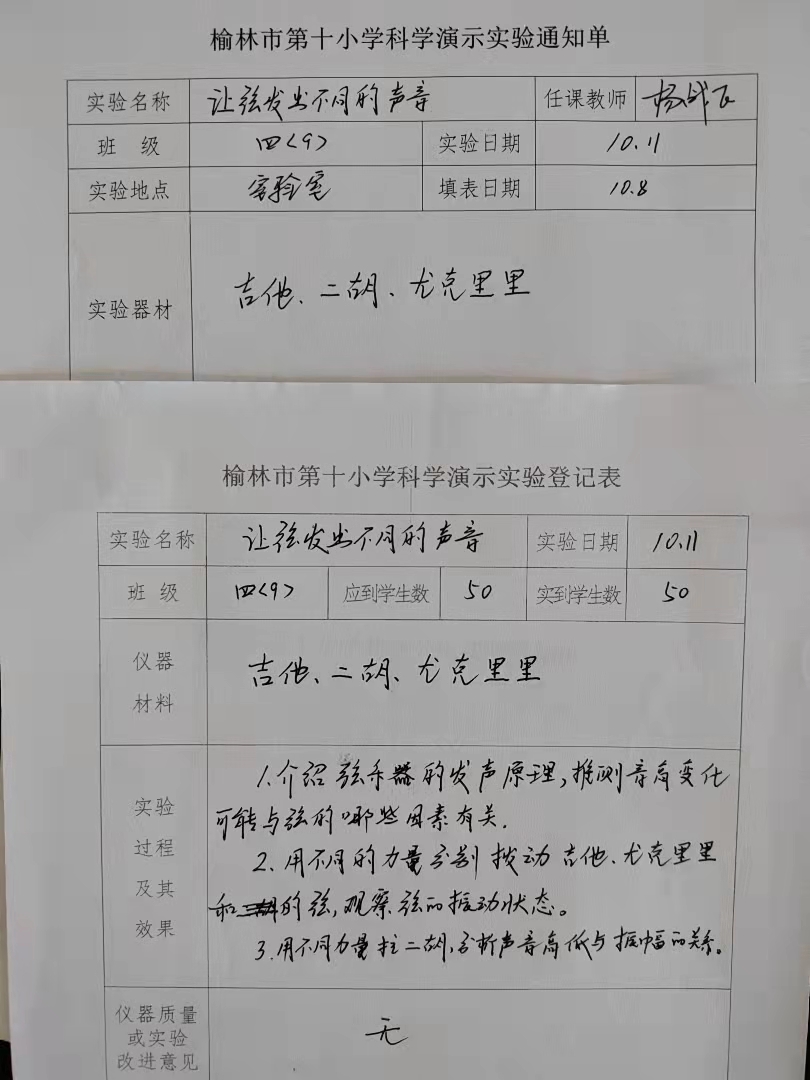 榆林市第十小学科学演示实验通知单
实验名称 让弦发出不同的声音 任课教师
班 级 四<9> 实验日期 10.11
实验地点 实验室 填表日期 10.8
实验器材 吉他、二胡、尤克里里
榆林市第十小学科学演示实验登记表
实验名称 让弦发出不同的声音 实验日期 10.11
班 级 四<9> 应到学生数 50 实到学生数 50
仪器
材料
吉他、二胡、尤克里里
实验
过程
及其
效果
1.介绍弦乐器的发声原理,推测音高变化
可能与弦的哪些因素有关.
2、用不同的力量分别拨动吉他、尤克里里
和的弦,观察弦的振动状态。
3.用不同力量拉二胡,分析声音高低与振幅的关系。
仪器质量
或实验
改进意见
无